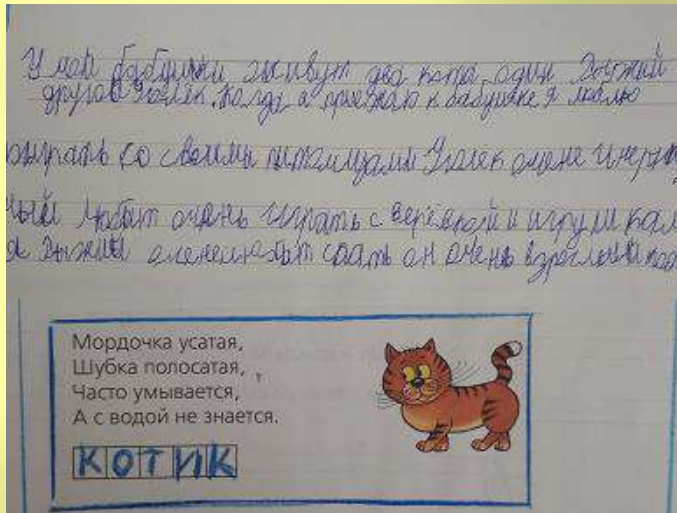 У моей бабушки живут два кота один Рыжий
другой Уголек. Когда я приезжаю к бабушке я люблю
играть со своими питомцами Уголек
любит очень играть с верёвкой и
Рыжий спать он очень взрослый
Мордочка усатая,
Шубка полосатая,
Часто умывается,
А с водой не знается.
КОТИК